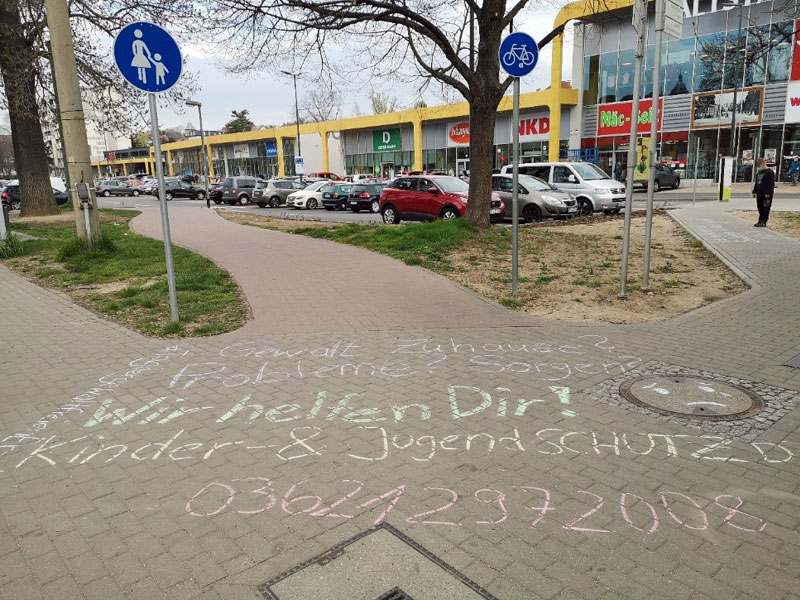 D
Mäc-Geiz
NKD
Gewalt Zuhause?
Probleme? Sorgen?
Wir helfen Dir!
Kinder-& Jugend SCHUTZD
036212972008